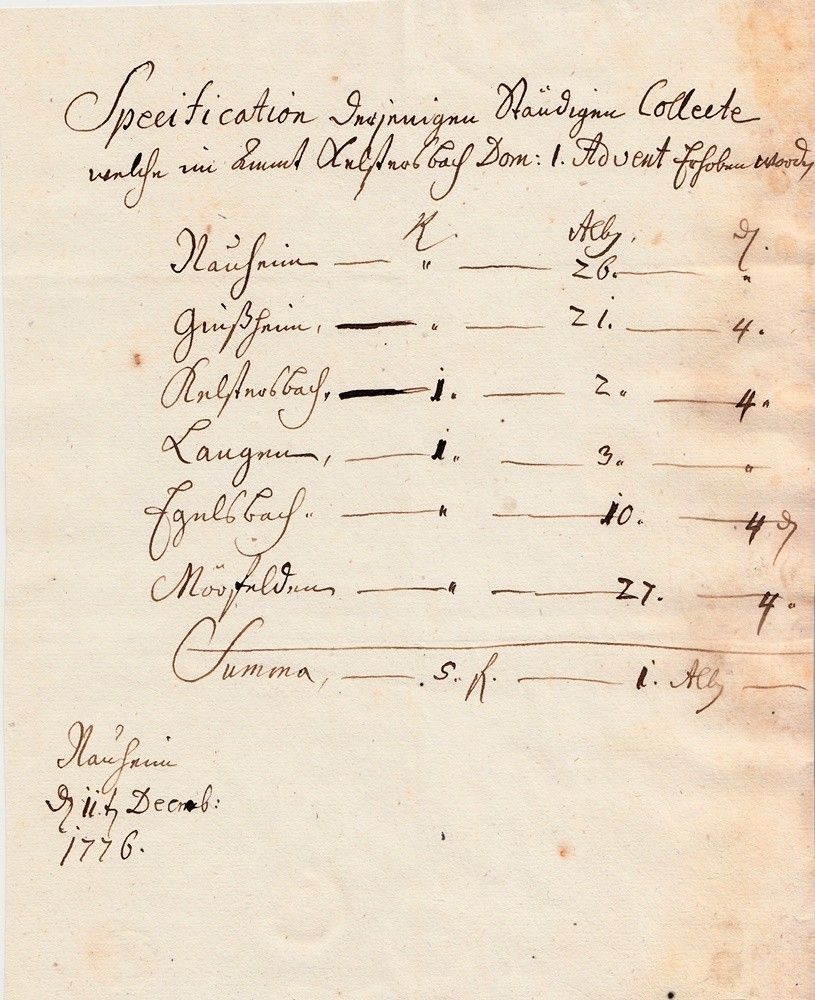 Specification derjenigen Ständigen Collecte
welche im Ammt Kelstersbach Dom: 1. Advent Erhoben word
fl. Alb. d.
Nauheim — " — 26. — "
Ginßheim, — " — 21. — 4.
Kelstersbach, — 1. — 2. — 4.
Langen, — 1. — 3. — "
Egelsbach. — " — 10. — 4 d
Mörfelden — " — 27. — 4.
Summa, — 5. fl. — 1. Alb —
Nauheim
d 11.t Decemb:
1776.